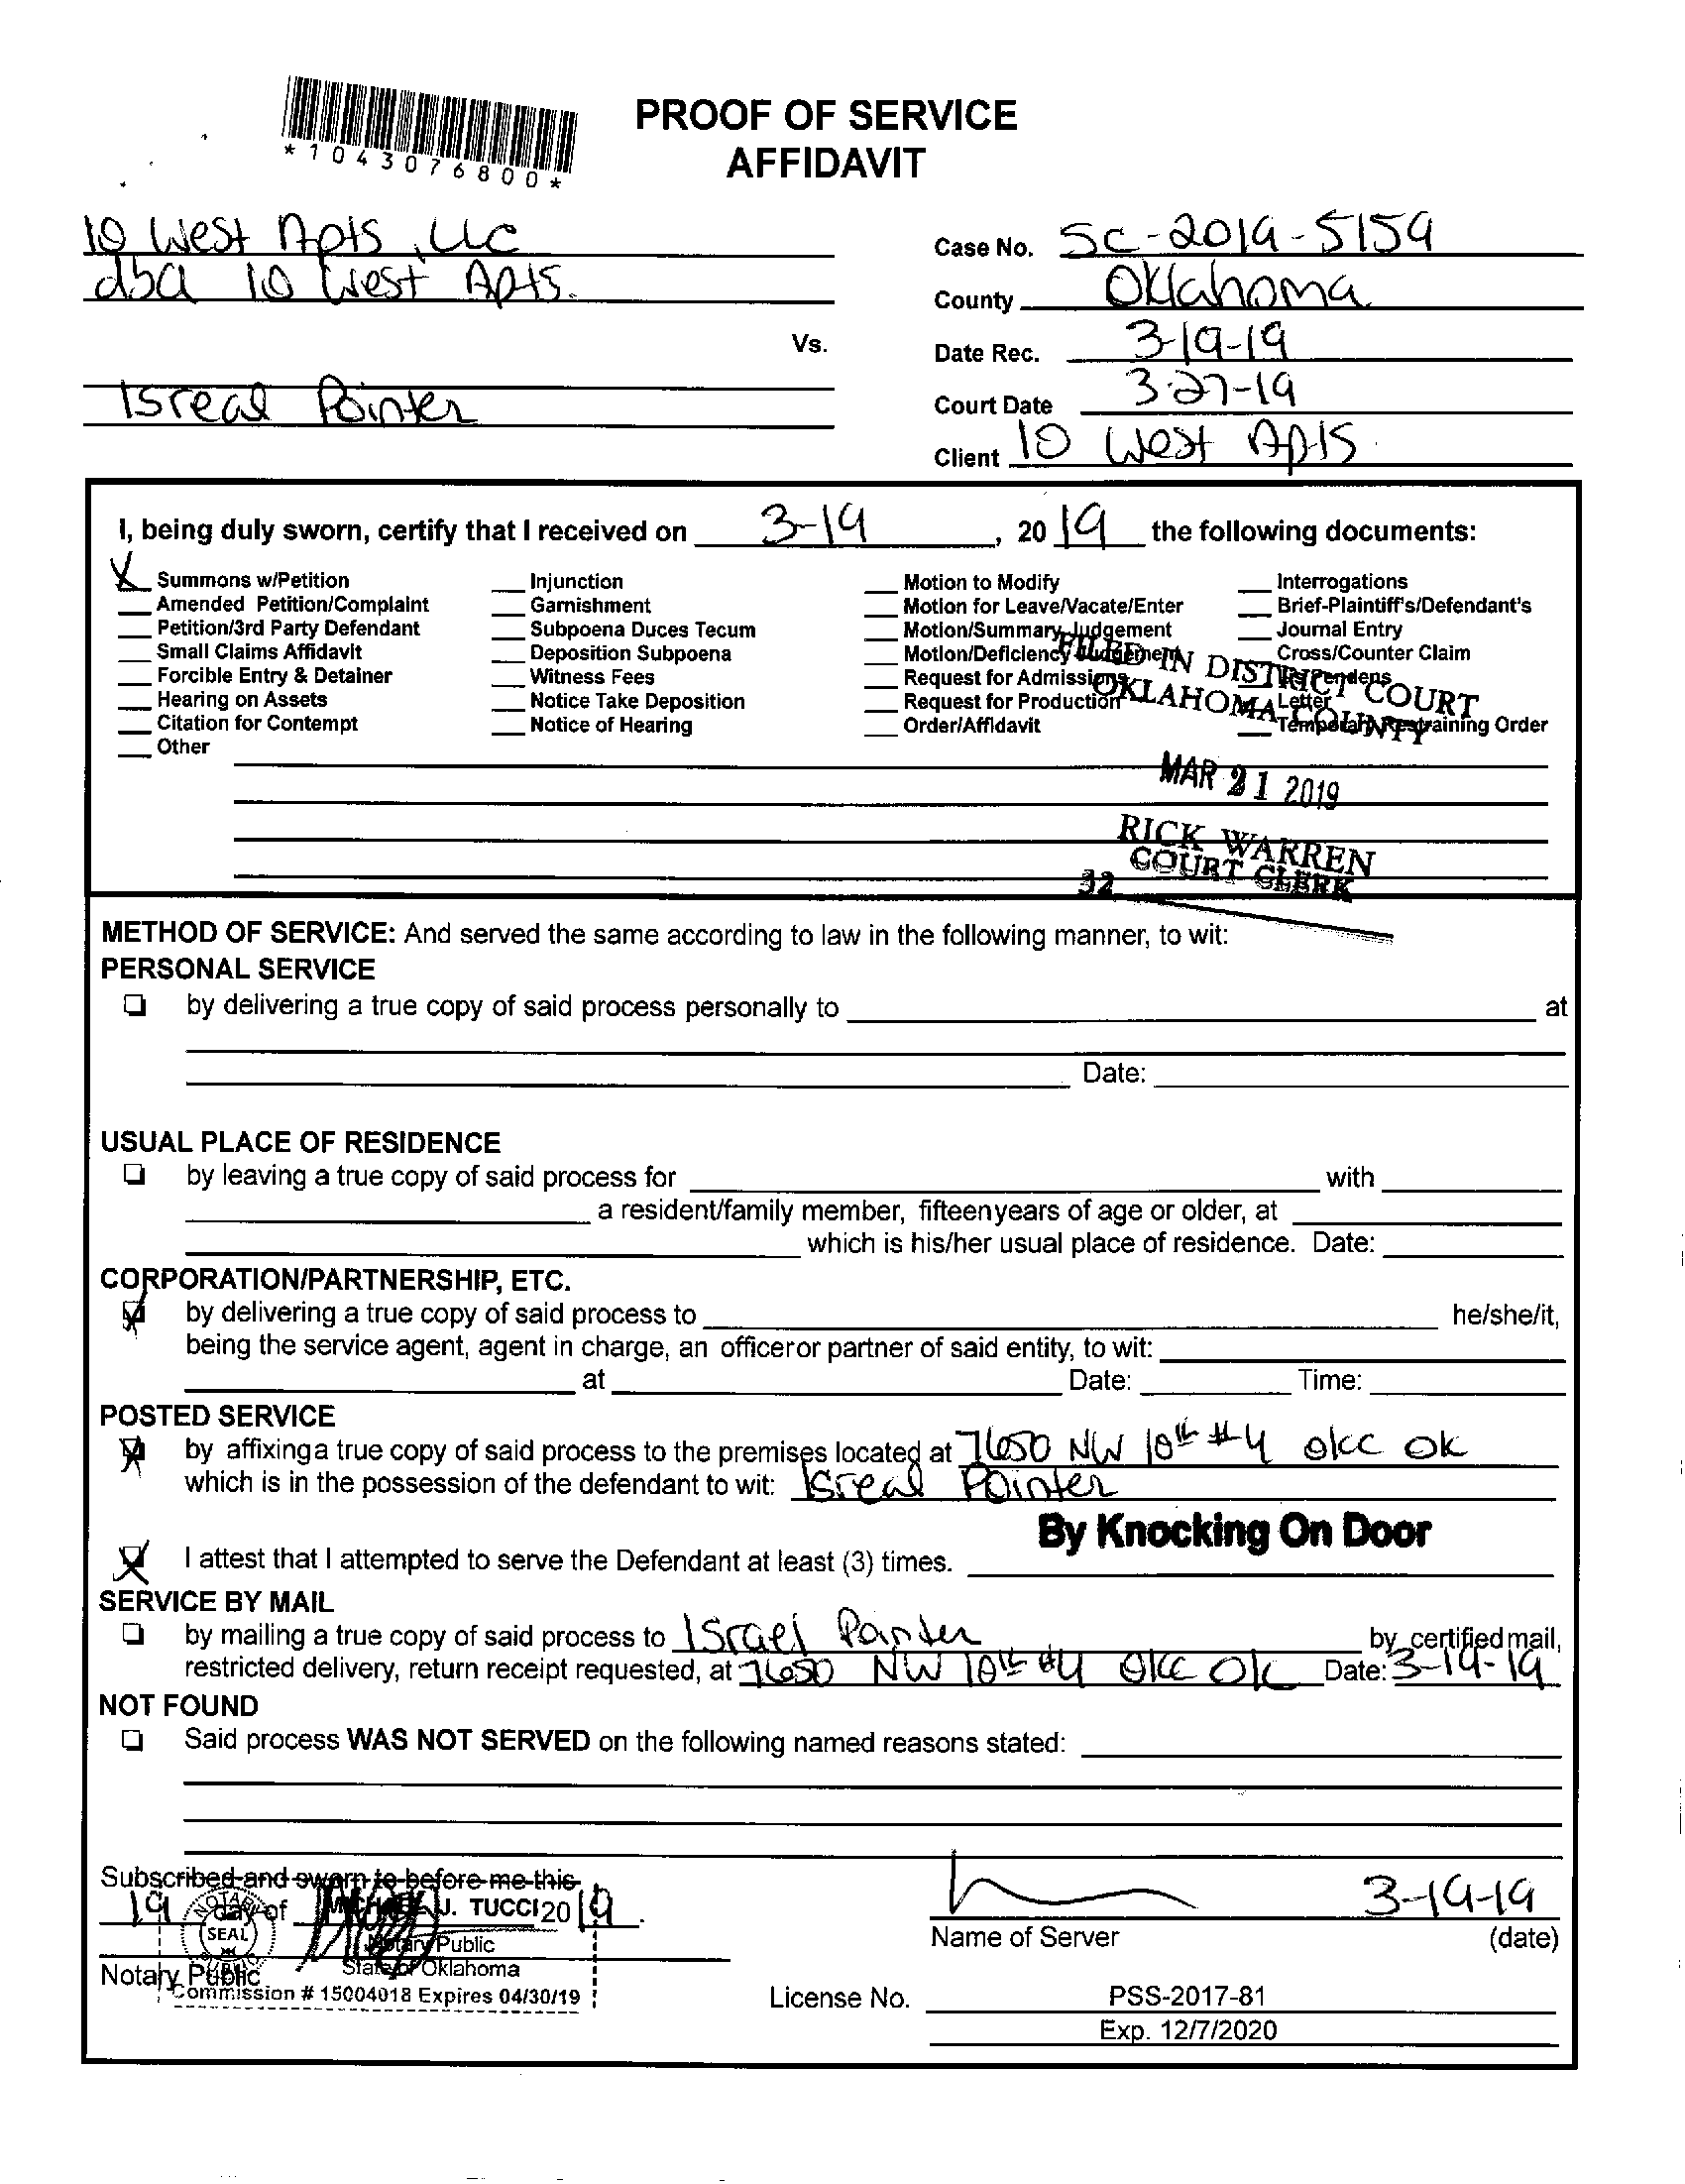 PROOF OF SERVICE
AFFIDAVIT
*1043076800*
10 West Apts, LLC
dba 10 West Apts.
Vs.
Isreal Pointer
Case No. SC-2019-5159
County Oklahoma
Date Rec. 3-19-19
Court Date 3-27-19
Client 10 West Apts.
I, being duly sworn, certify that I received on 3-19, 2019 the following documents:
X Summons w/Petition
Amended Petition/Complaint
Petition/3rd Party Defendant
Small Claims Affidavit
Forcible Entry & Detainer
Hearing on Assets
Citation for Contempt
Other
Injunction
Garnishment
Subpoena Duces Tecum
Deposition Subpoena
Witness Fees
Notice Take Deposition
Notice of Hearing
Motion to Modify
Motion for Leave/Vacate/Enter
Motion/Summary Judgement
Motion/Deficiency Judgement
Request for Admissions
Request for Production
Order/Affidavit
Interrogations
Brief-Plaintiff's/Defendant's
Journal Entry
Cross/Counter Claim
Lis Pendens
Letter
Temporary Restraining Order
FILED IN DISTRICT COURT
OKLAHOMA COUNTY
MAR 21 2019
RICK WARREN
COURT CLERK
32
METHOD OF SERVICE: And served the same according to law in the following manner, to wit:
PERSONAL SERVICE
by delivering a true copy of said process personally to at
Date:
USUAL PLACE OF RESIDENCE
by leaving a true copy of said process for with
a resident/family member, fifteen years of age or older, at
which is his/her usual place of residence. Date:
CORPORATION/PARTNERSHIP, ETC.
by delivering a true copy of said process to he/she/it,
being the service agent, agent in charge, an officer or partner of said entity, to wit:
at Date: Time:
POSTED SERVICE
by affixing a true copy of said process to the premises located at 7650 NW 10th #4 OKC OK
which is in the possession of the defendant to wit: Isreal Pointer
By Knocking On Door
I attest that I attempted to serve the Defendant at least (3) times.
SERVICE BY MAIL
by mailing a true copy of said process to Israel Panter by certified mail,
restricted delivery, return receipt requested, at 7650 NW 10th #4 OKC OK Date: 3-19-19
NOT FOUND
Said process WAS NOT SERVED on the following named reasons stated:
Subscribed and sworn to before me this
19 day of 2019
J. TUCCI
Notary Public
State of Oklahoma
Commission # 15004018 Expires 04/30/19
NOTARY PUBLIC
SEAL
Notary Public
3-19-19
Name of Server (date)
License No. PSS-2017-81
Exp. 12/7/2020